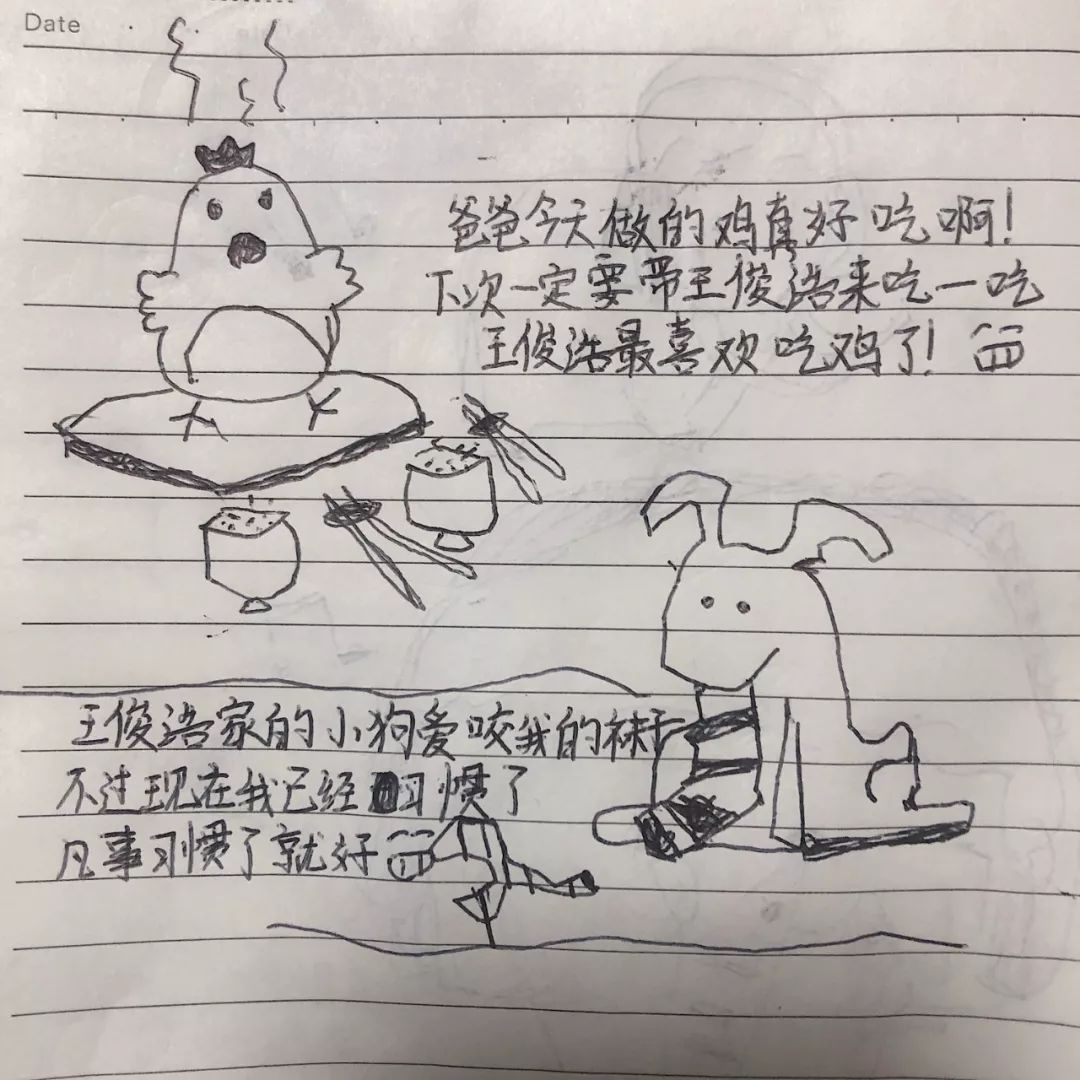 Date
爸爸今天做的鸡真好吃啊!
下次一定要带王俊浩来吃一吃
王俊浩最喜欢吃鸡了!
王俊浩家的小狗爱咬我的袜子
不过现在我已经习惯了
凡事习惯了就好